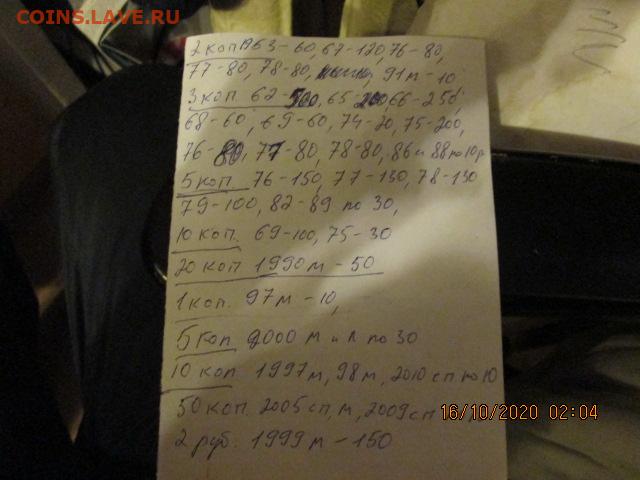 COINS.LAVE.RU
2 коп 1963-60, 67-120, 76-80,
77-80, 78-80, 91м-10
3 коп. 62-500, 65-200 66-250,
68-60, 69-60, 74-20, 75-200,
76-80, 77-80, 78-80, 86 и 88 по 10р
5 коп 76-150, 77-130, 78-130
79-100, 82-89 по 30,
10 коп. 69-100, 75-30
20 коп 1990м-50
1 коп. 97м-10,
5 коп 2000 м и л по 30
10 коп 1997м, 98м, 2010 сп по 10
50 коп. 2005 сп, м, 2009 сп
16/10/2020 02:04
2 руб. 1999м-150